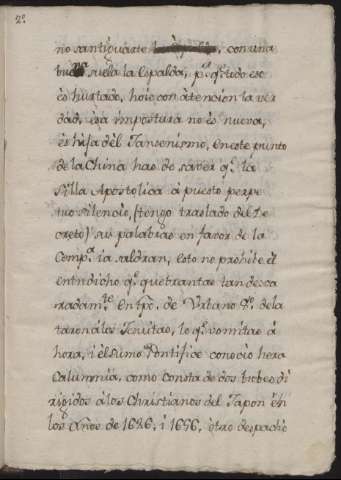 2º
no santiguarte con una
suela la Espalda, pª qº todo ese
es hurtado, hoie con àtencion la ver
dad, esa impostura no és nueva,
és hija dél Jansenismo, en este punto
de la China has de saver qº la
Silla Apostolica à puesto perpe
tuo silencio, (tengo traslado del De
creto) sus palabras en favor de la
Compª ia saldran, esto no prohibe él
entredicho qº quebrantas tan desca
radamte. En tpº. de Urbano 8º. dela
taron á los Jesuitas, lo qº vomitas à
hora, i él sumo Pontifice conocio hera
Calumnia, como consta de dos brebes di
rigidos à los Christianos del Japon én
los años de 1626, i 1656, otro despacho